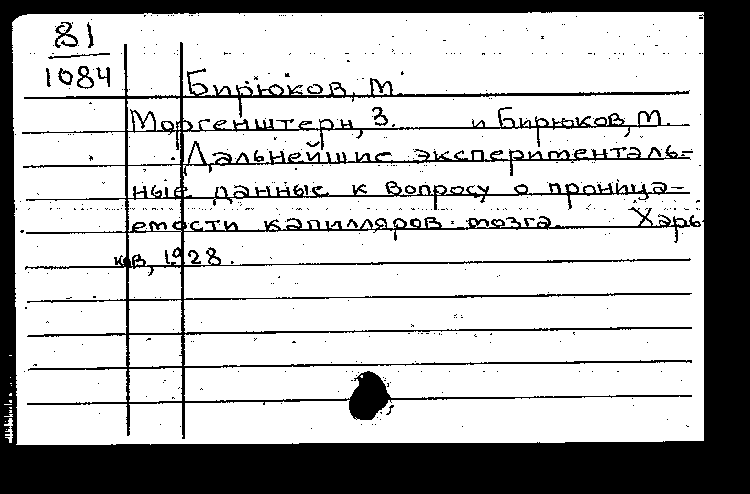 81
1084
Бирюков, М.
Моргенштерн, З. и Бирюков, М.
Дальнейшие эксперименталь=
ные данные к вопросу о проница=
емости капилляров мозга. Харь-
ков, 1928.